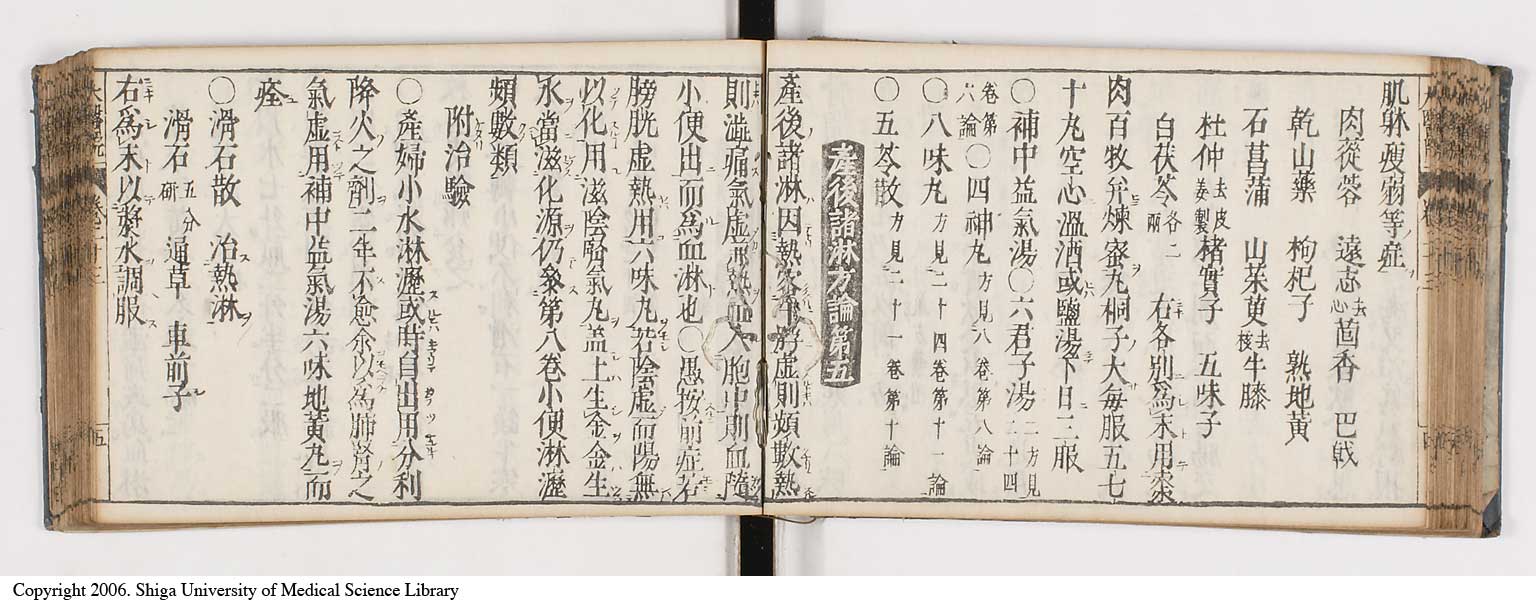 肌躰瘦弱等症
肉蓯蓉 遠志去心 茴香 巴戟
乾山藥 枸杞子 熟地黃
石菖蒲 山茱萸去核 牛膝
杜仲去皮姜製 楮實子 五味子
白茯苓各二兩 右各別爲末用棗
肉百牧并煉蜜丸桐子大每服五七
十丸空心溫酒或鹽湯下日三服
○補中益氣湯○六君子湯二方見二十四
卷第六論○四神丸方見八卷第八論
○八味丸方見二十四卷第十一論
○五苓散方見二十一卷第十論
產後諸淋方論第五
產後諸淋因熱客於脬虛則頻數熱
則澁痛氣虛兼熱血入胞中則血隨
小便出而爲血淋也○愚按前症若
膀胱虛熱用六味丸若陰虛而陽無
以化用滋陰腎氣丸盖土生金金生
水當滋化源仍叅第八卷小便淋瀝
頻數類
附治驗
○產婦小水淋瀝或時自出用分利
降火之劑二年不愈余以爲肺腎之
氣虛用補中益氣湯六味地黃丸而
痊
○滑石散 治熱淋
滑石五分研 通草 車前子
右爲末以漿水調服
五
Copyright 2006. Shiga University of Medical Science Library